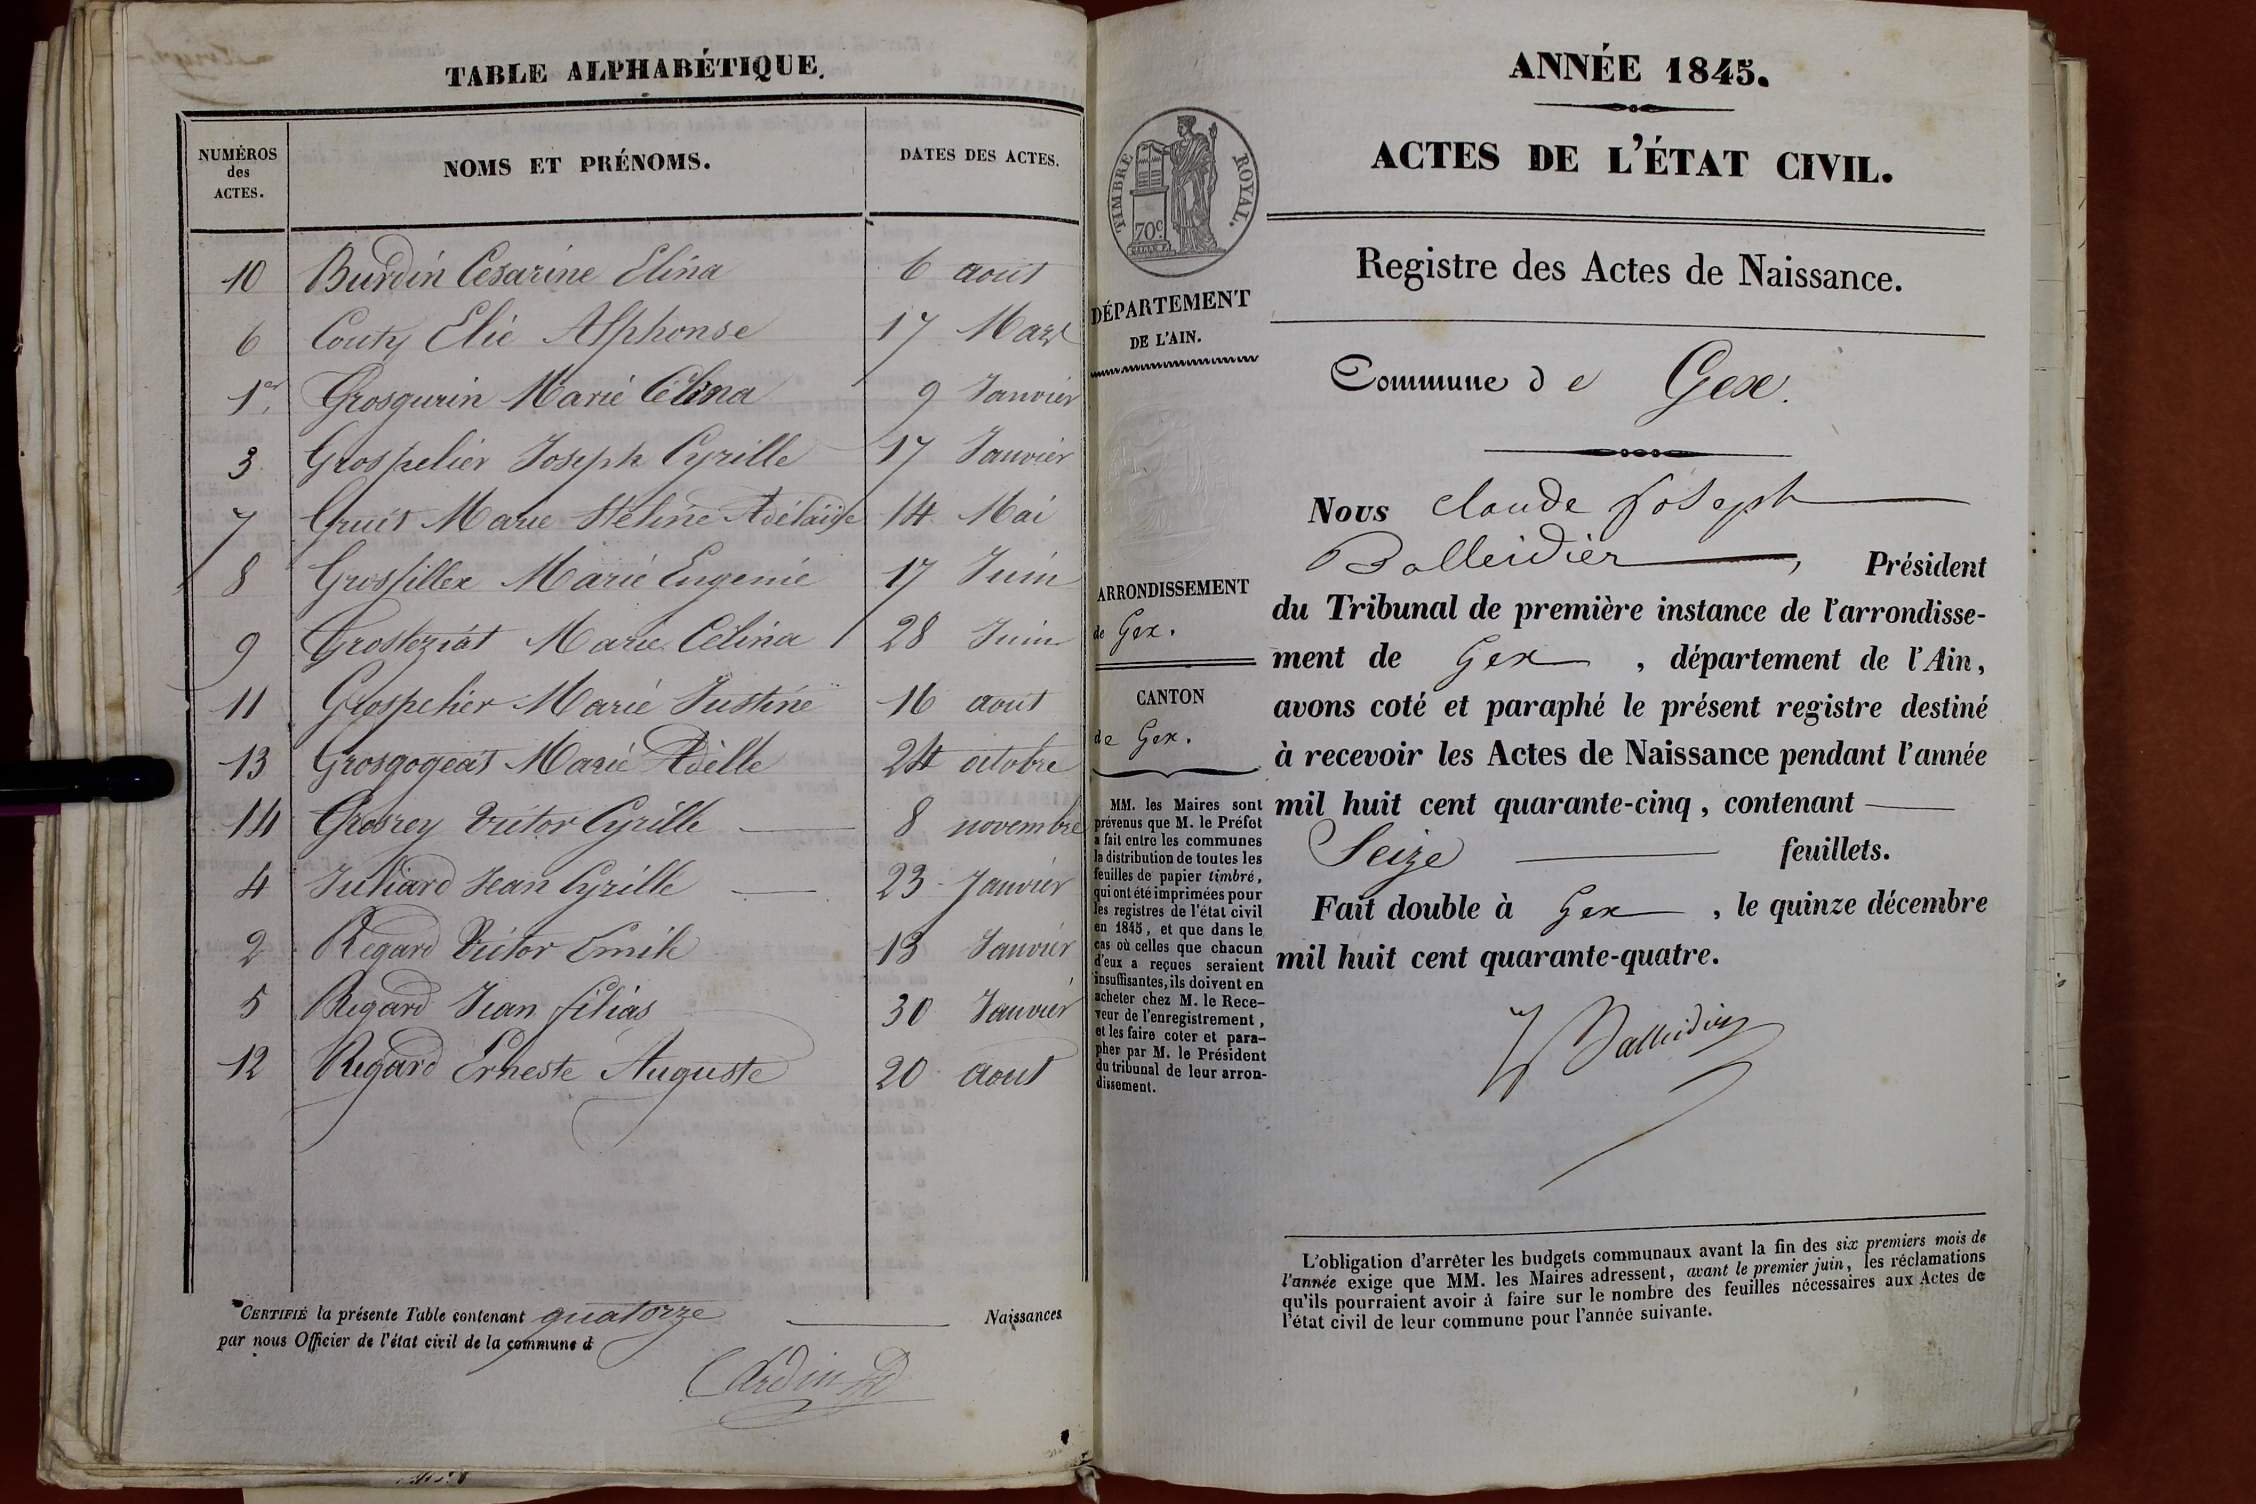 TABLE ALPHABÉTIQUE.
NUMÉROS des ACTES. NOMS ET PRÉNOMS. DATES DES ACTES.
10 Burdin Césarine Elina 6 août
6 Couty Elie Alphonse 17 Mars
1er Grosgurin Marie Célina 9 Janvier
3 Grospelier Joseph Cyrille 17 Janvier
7 Gruet Marie Héline Adélaïde 14 Mai
8 Grosfillex Marie Eugenie 17 Juin
9 Marie Célina 28 Juin
11 Grospelier Marie Justine 16 août
13 Grosgogeat Marie Adèlle 24 octobre
14 Grosrey Victor Cyrille 8 novembre
4 Juliard Jean Cyrille 23 Janvier
2 Regard Victor Emile 13 Janvier
5 Regard Jean félias 30 Janvier
12 Regard Erneste Auguste 20 août
CERTIFIÉ la présente Table contenant quatorze Naissances
par nous Officier de l'état civil de la commune d
ANNÉE 1845.
ACTES DE L'ÉTAT CIVIL.
TIMBRE ROYAL.
70c
DÉPARTEMENT
DE L'AIN.
Registre des Actes de Naissance.
Commune de Gex.
ARRONDISSEMENT
de Gex.
CANTON
de Gex.
MM. les Maires sont
prévenus que M. le Préfet
a fait entre les communes
la distribution de toutes les
feuilles de papier timbré,
qui ont été imprimées pour
les registres de l'état civil
en 1845, et que dans le
cas où celles que chacun
d'eux a reçues seraient
insuffisantes, ils doivent en
acheter chez M. le Rece-
veur de l'enregistrement,
et les faire coter et para-
pher par M. le Président
du tribunal de leur arron-
dissement.
Nous Claude Joseph
Balleidier, Président
du Tribunal de première instance de l'arrondisse-
ment de Gex, département de l'Ain,
avons coté et paraphé le présent registre destiné
à recevoir les Actes de Naissance pendant l'année
mil huit cent quarante-cinq, contenant
Seize feuillets.
Fait double à Gex, le quinze décembre
mil huit cent quarante-quatre.
Balleidier
L'obligation d'arrêter les budgets communaux avant la fin des six premiers mois de
l'année exige que MM. les Maires adressent, avant le premier juin, les réclamations
qu'ils pourraient avoir à faire sur le nombre des feuilles nécessaires aux Actes de
l'état civil de leur commune pour l'année suivante.